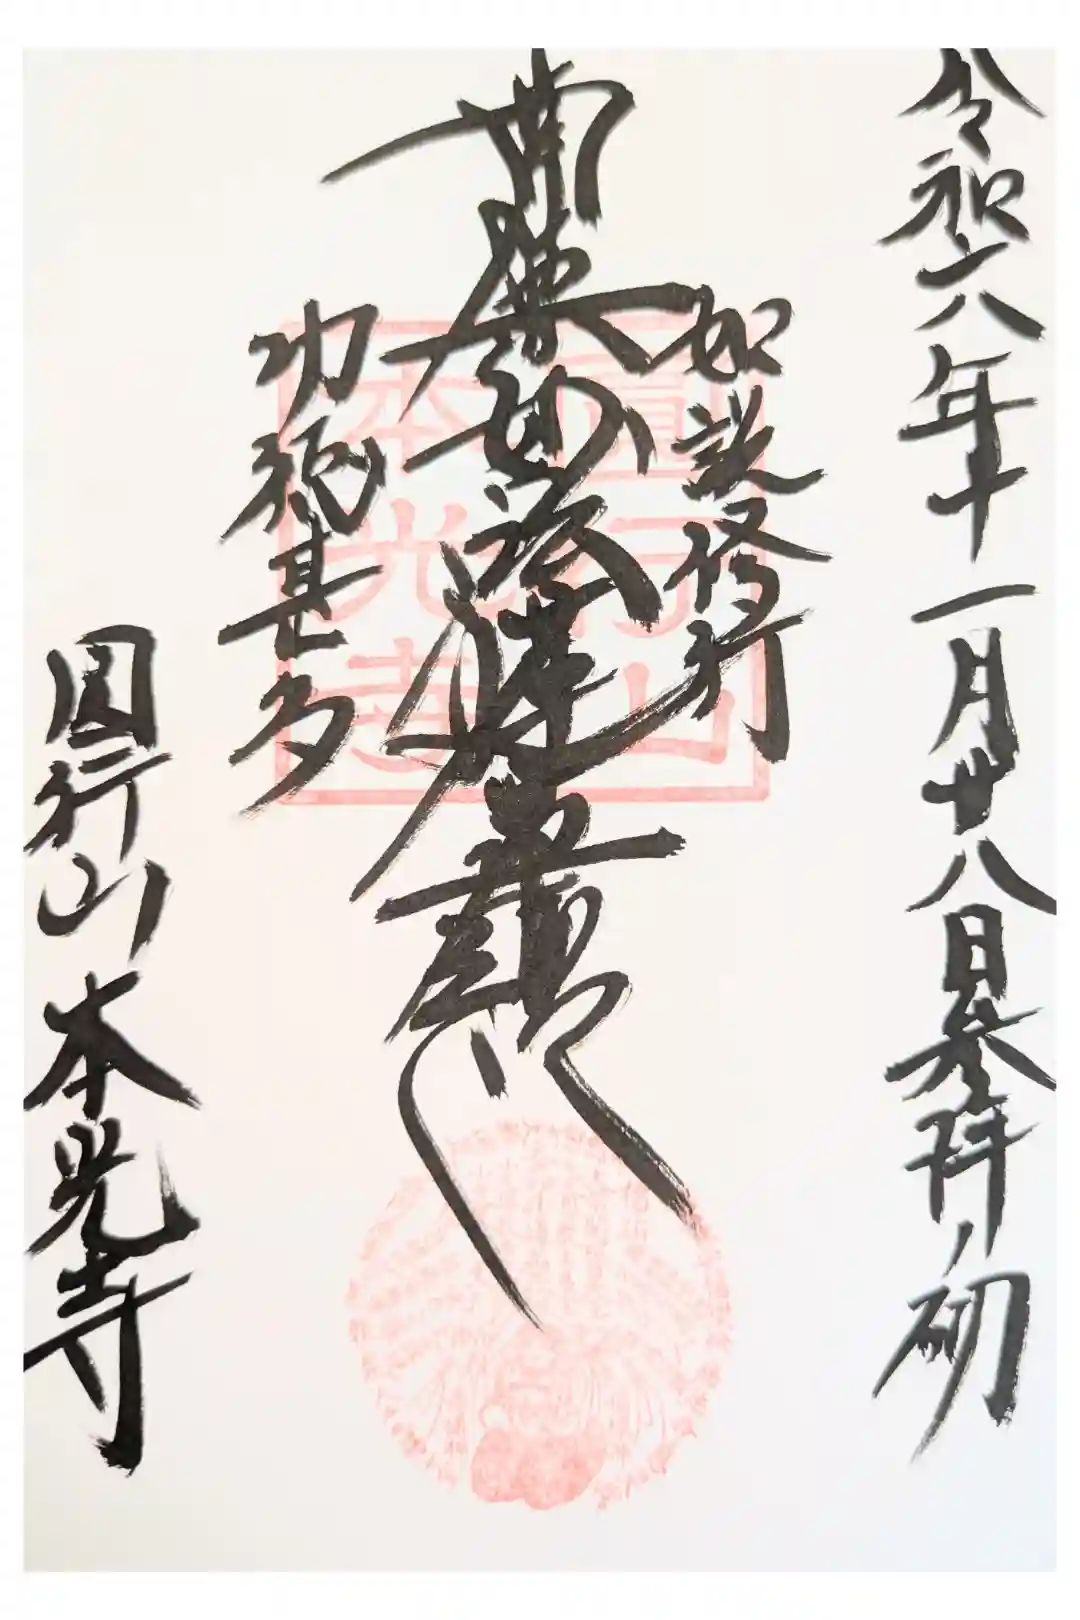 令和六年十一月廿八日参拝ノ砌
如説修行
南無妙法蓮華経
功徳甚多
圓行山 本光寺
圓行山
本光寺